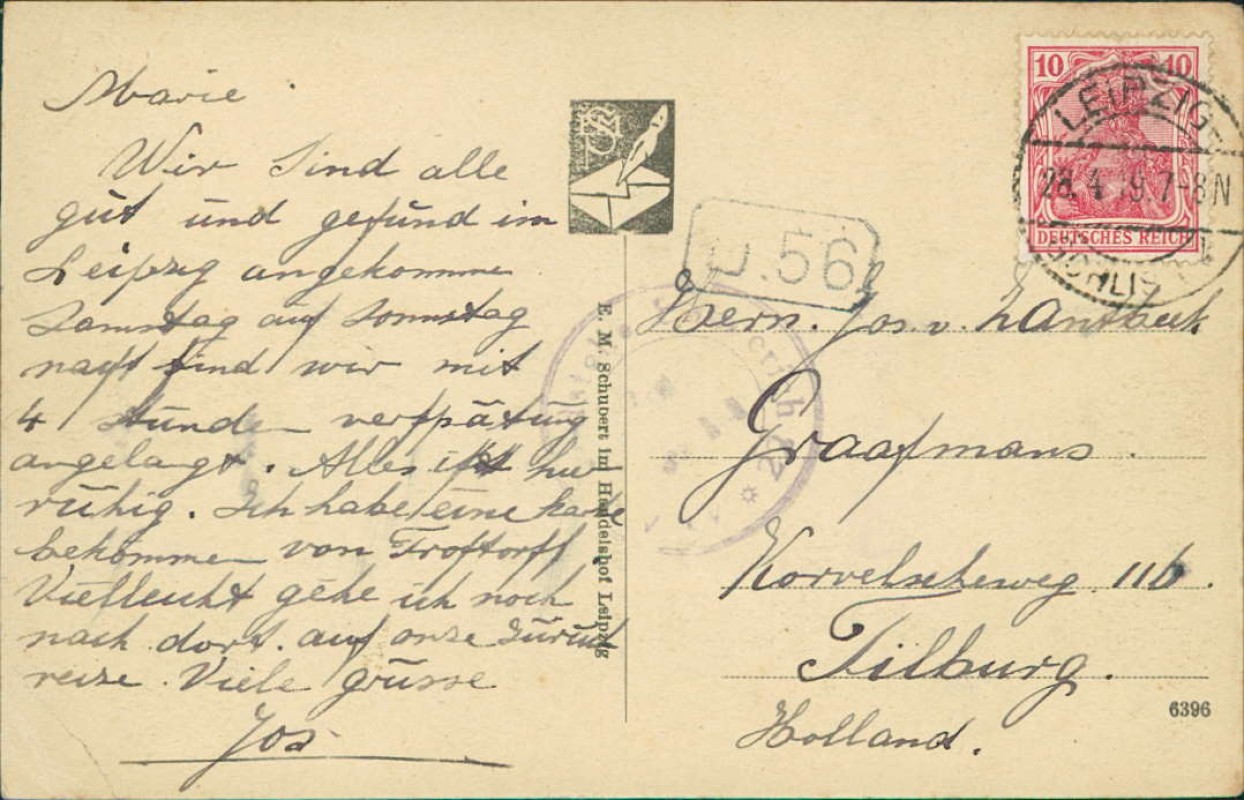 Marie
Wir sind alle
gut und gesund in
Leipzig angekomme
Samstag auf Sonnstag
nacht sind wir mit
4 stunden verspätung
angelangt. Alles ist hie
ruhig. Ich habe eine karte
bekommen von Troftorff
Vielleicht gehe ich noch
nach dort. auf onze Zurück
reize. Viele grüsse
Jos
E. M. Schubert im Handelshof Leipzig
10 10
DEUTSCHES REICH
LEIPZIG
28.4.19.7-8N
U.56
Herrn. Jos. v.
Graafmans.
Korvelscheweg 116.
Tilburg.
Holland.
6396